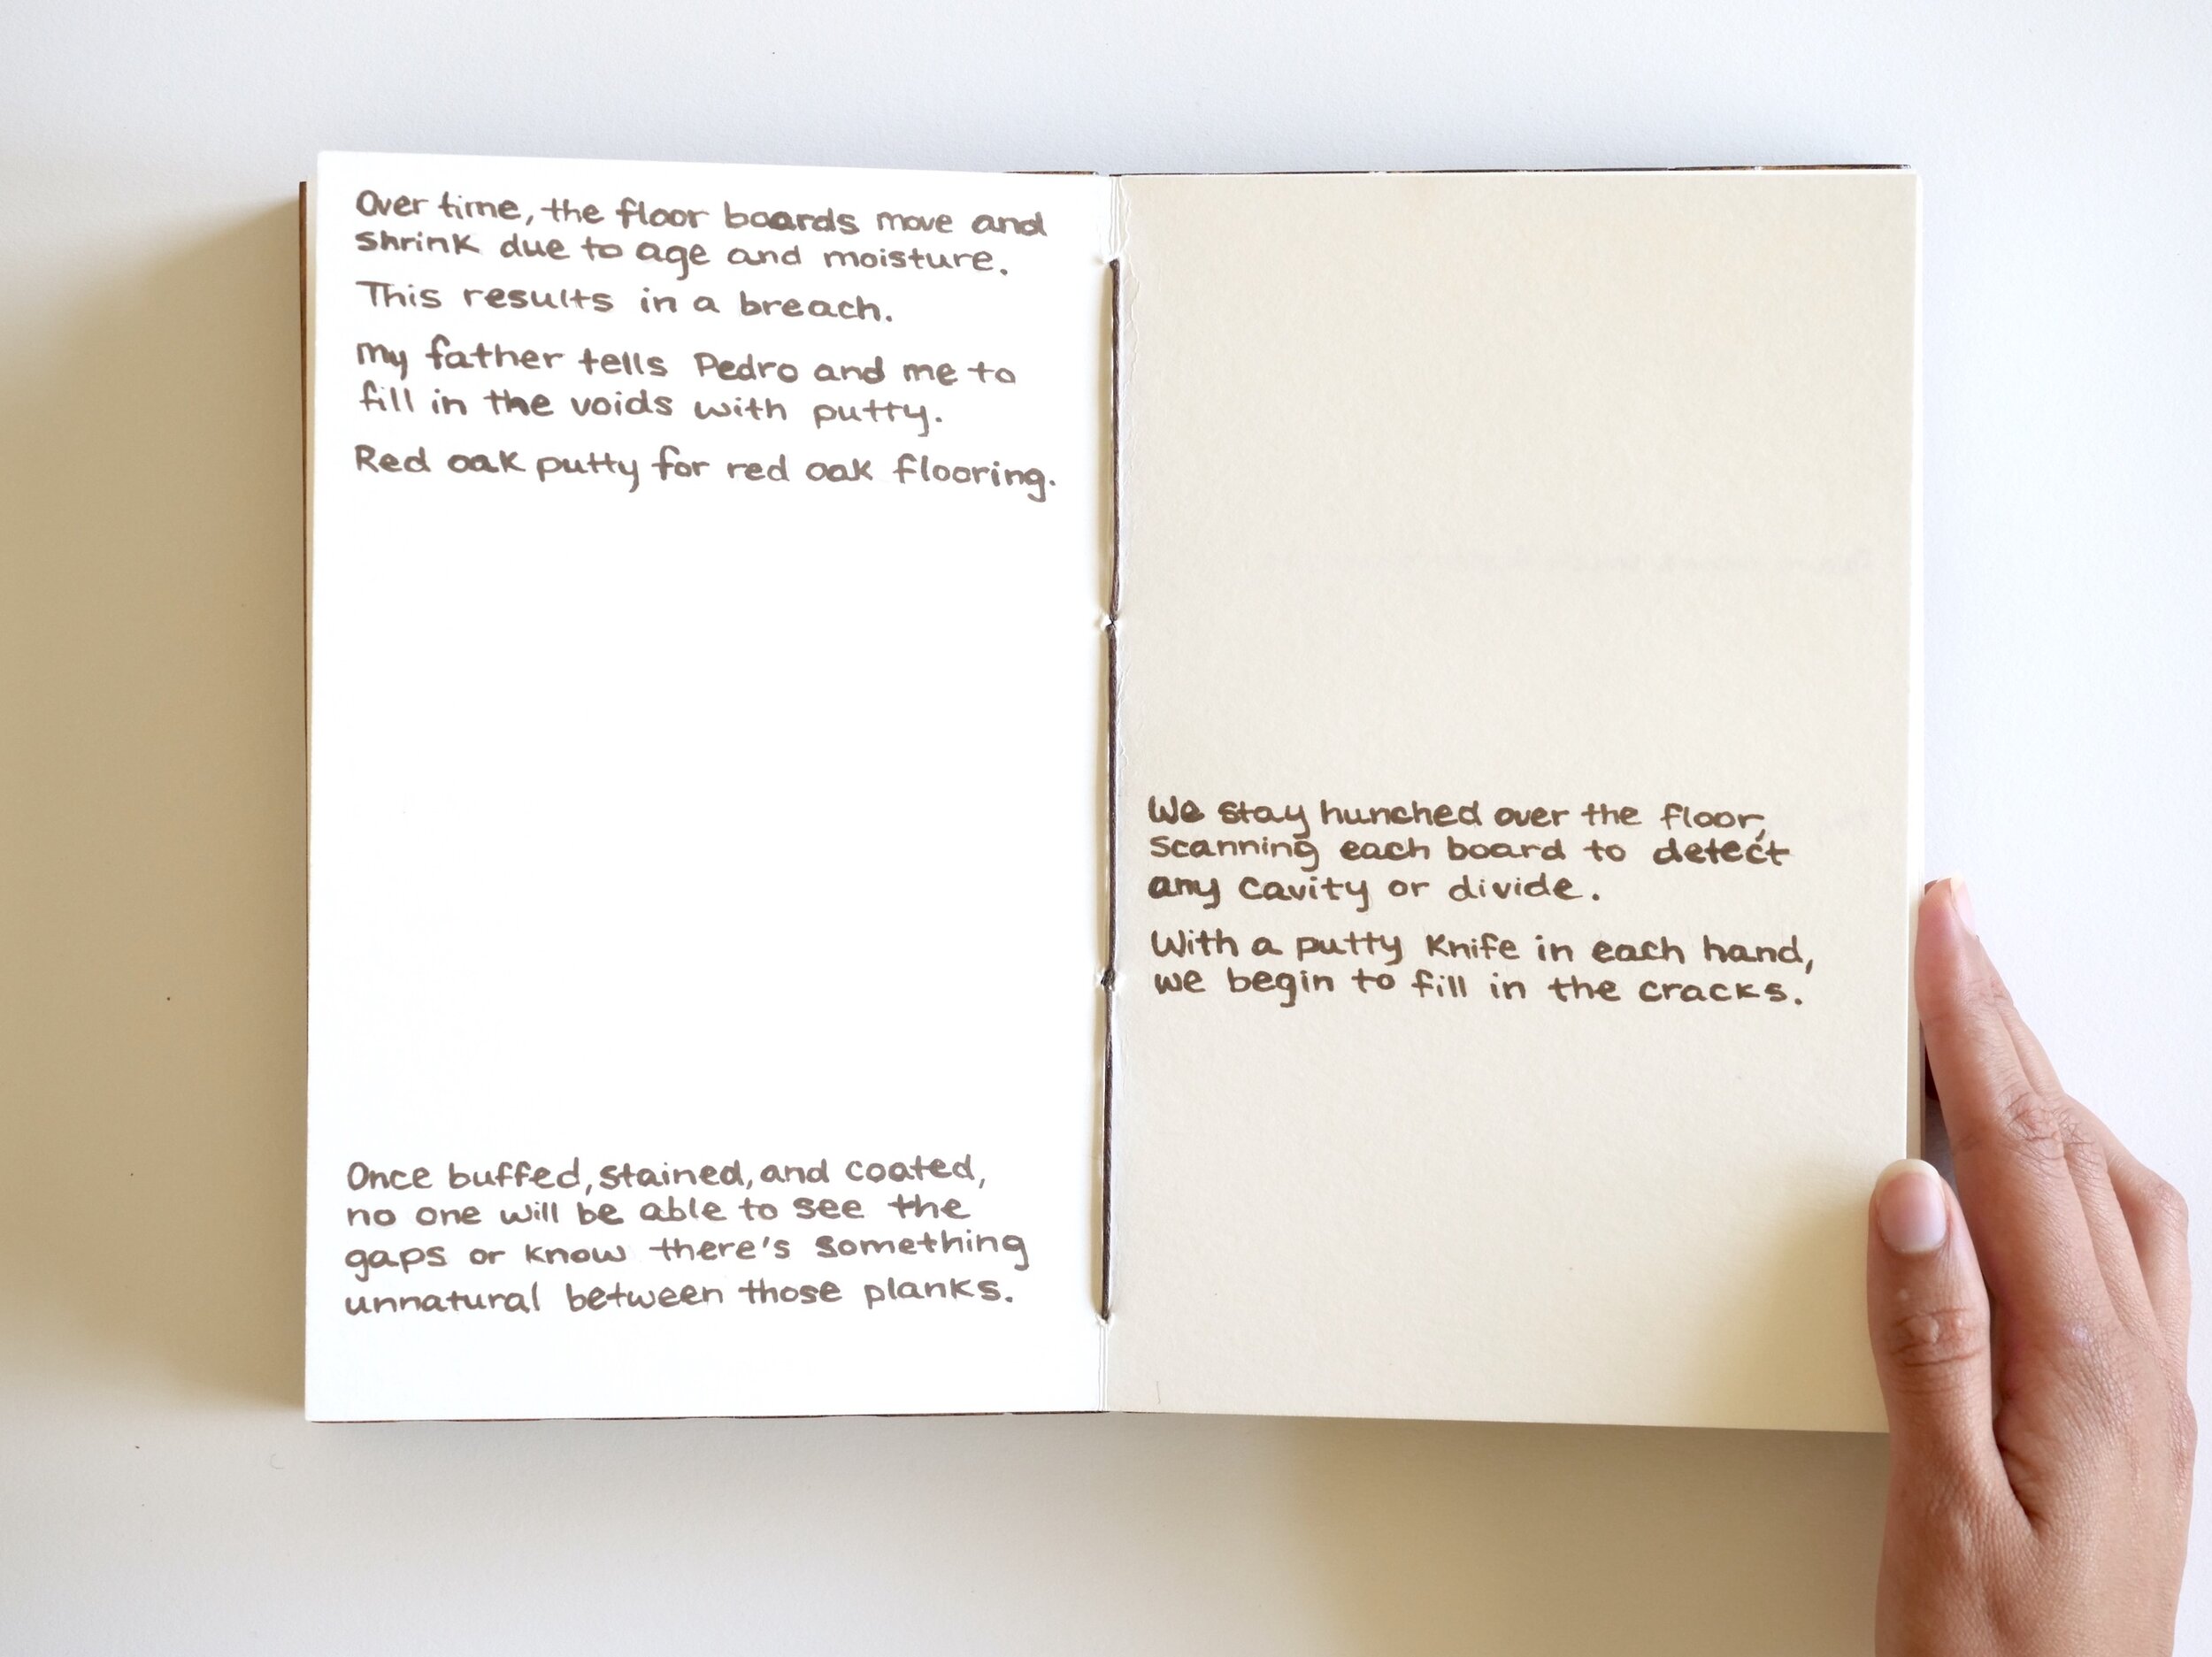 Over time, the floor boards move and
shrink due to age and moisture.
This results in a breach.
My father tells Pedro and me to
fill in the voids with putty.
Red oak putty for red oak flooring.
Once buffed, stained, and coated,
no one will be able to see the
gaps or know there's something
unnatural between those planks.
We stay hunched over the floor,
scanning each board to detect
any cavity or divide.
With a putty knife in each hand,
we begin to fill in the cracks.